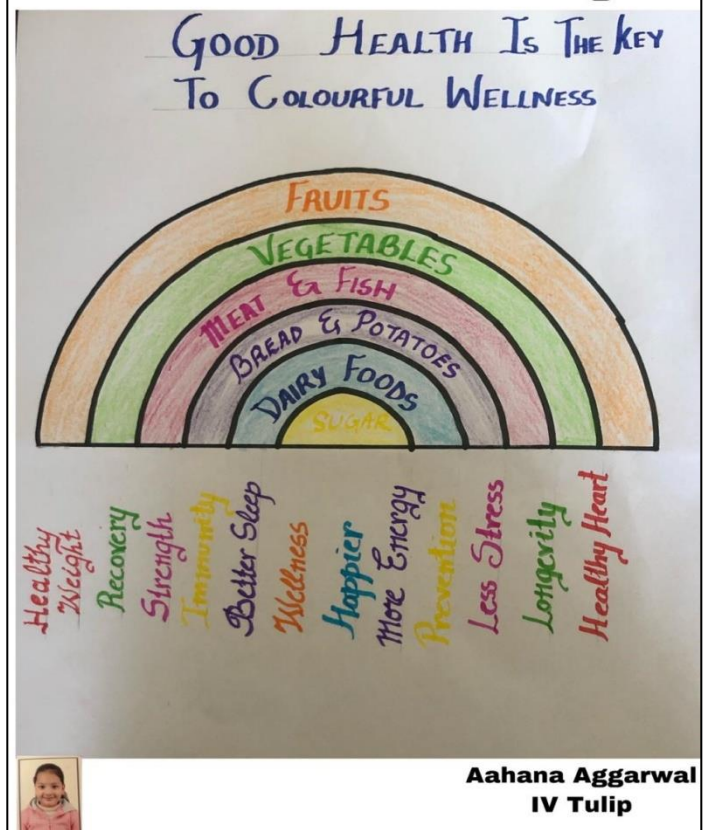 GOOD HEALTH IS THE KEY
TO COLOURFUL WELLNESS
FRUITS
VEGETABLES
MEAT & FISH
BREAD & POTATOES
DAIRY FOODS
SUGAR
Healthy
Weight
Recovery
Strength
Immunity
Better Sleep
Wellness
Happier
More Energy
Prevention
Less Stress
Longevity
Healthy Heart
Aahana Aggarwal
IV Tulip